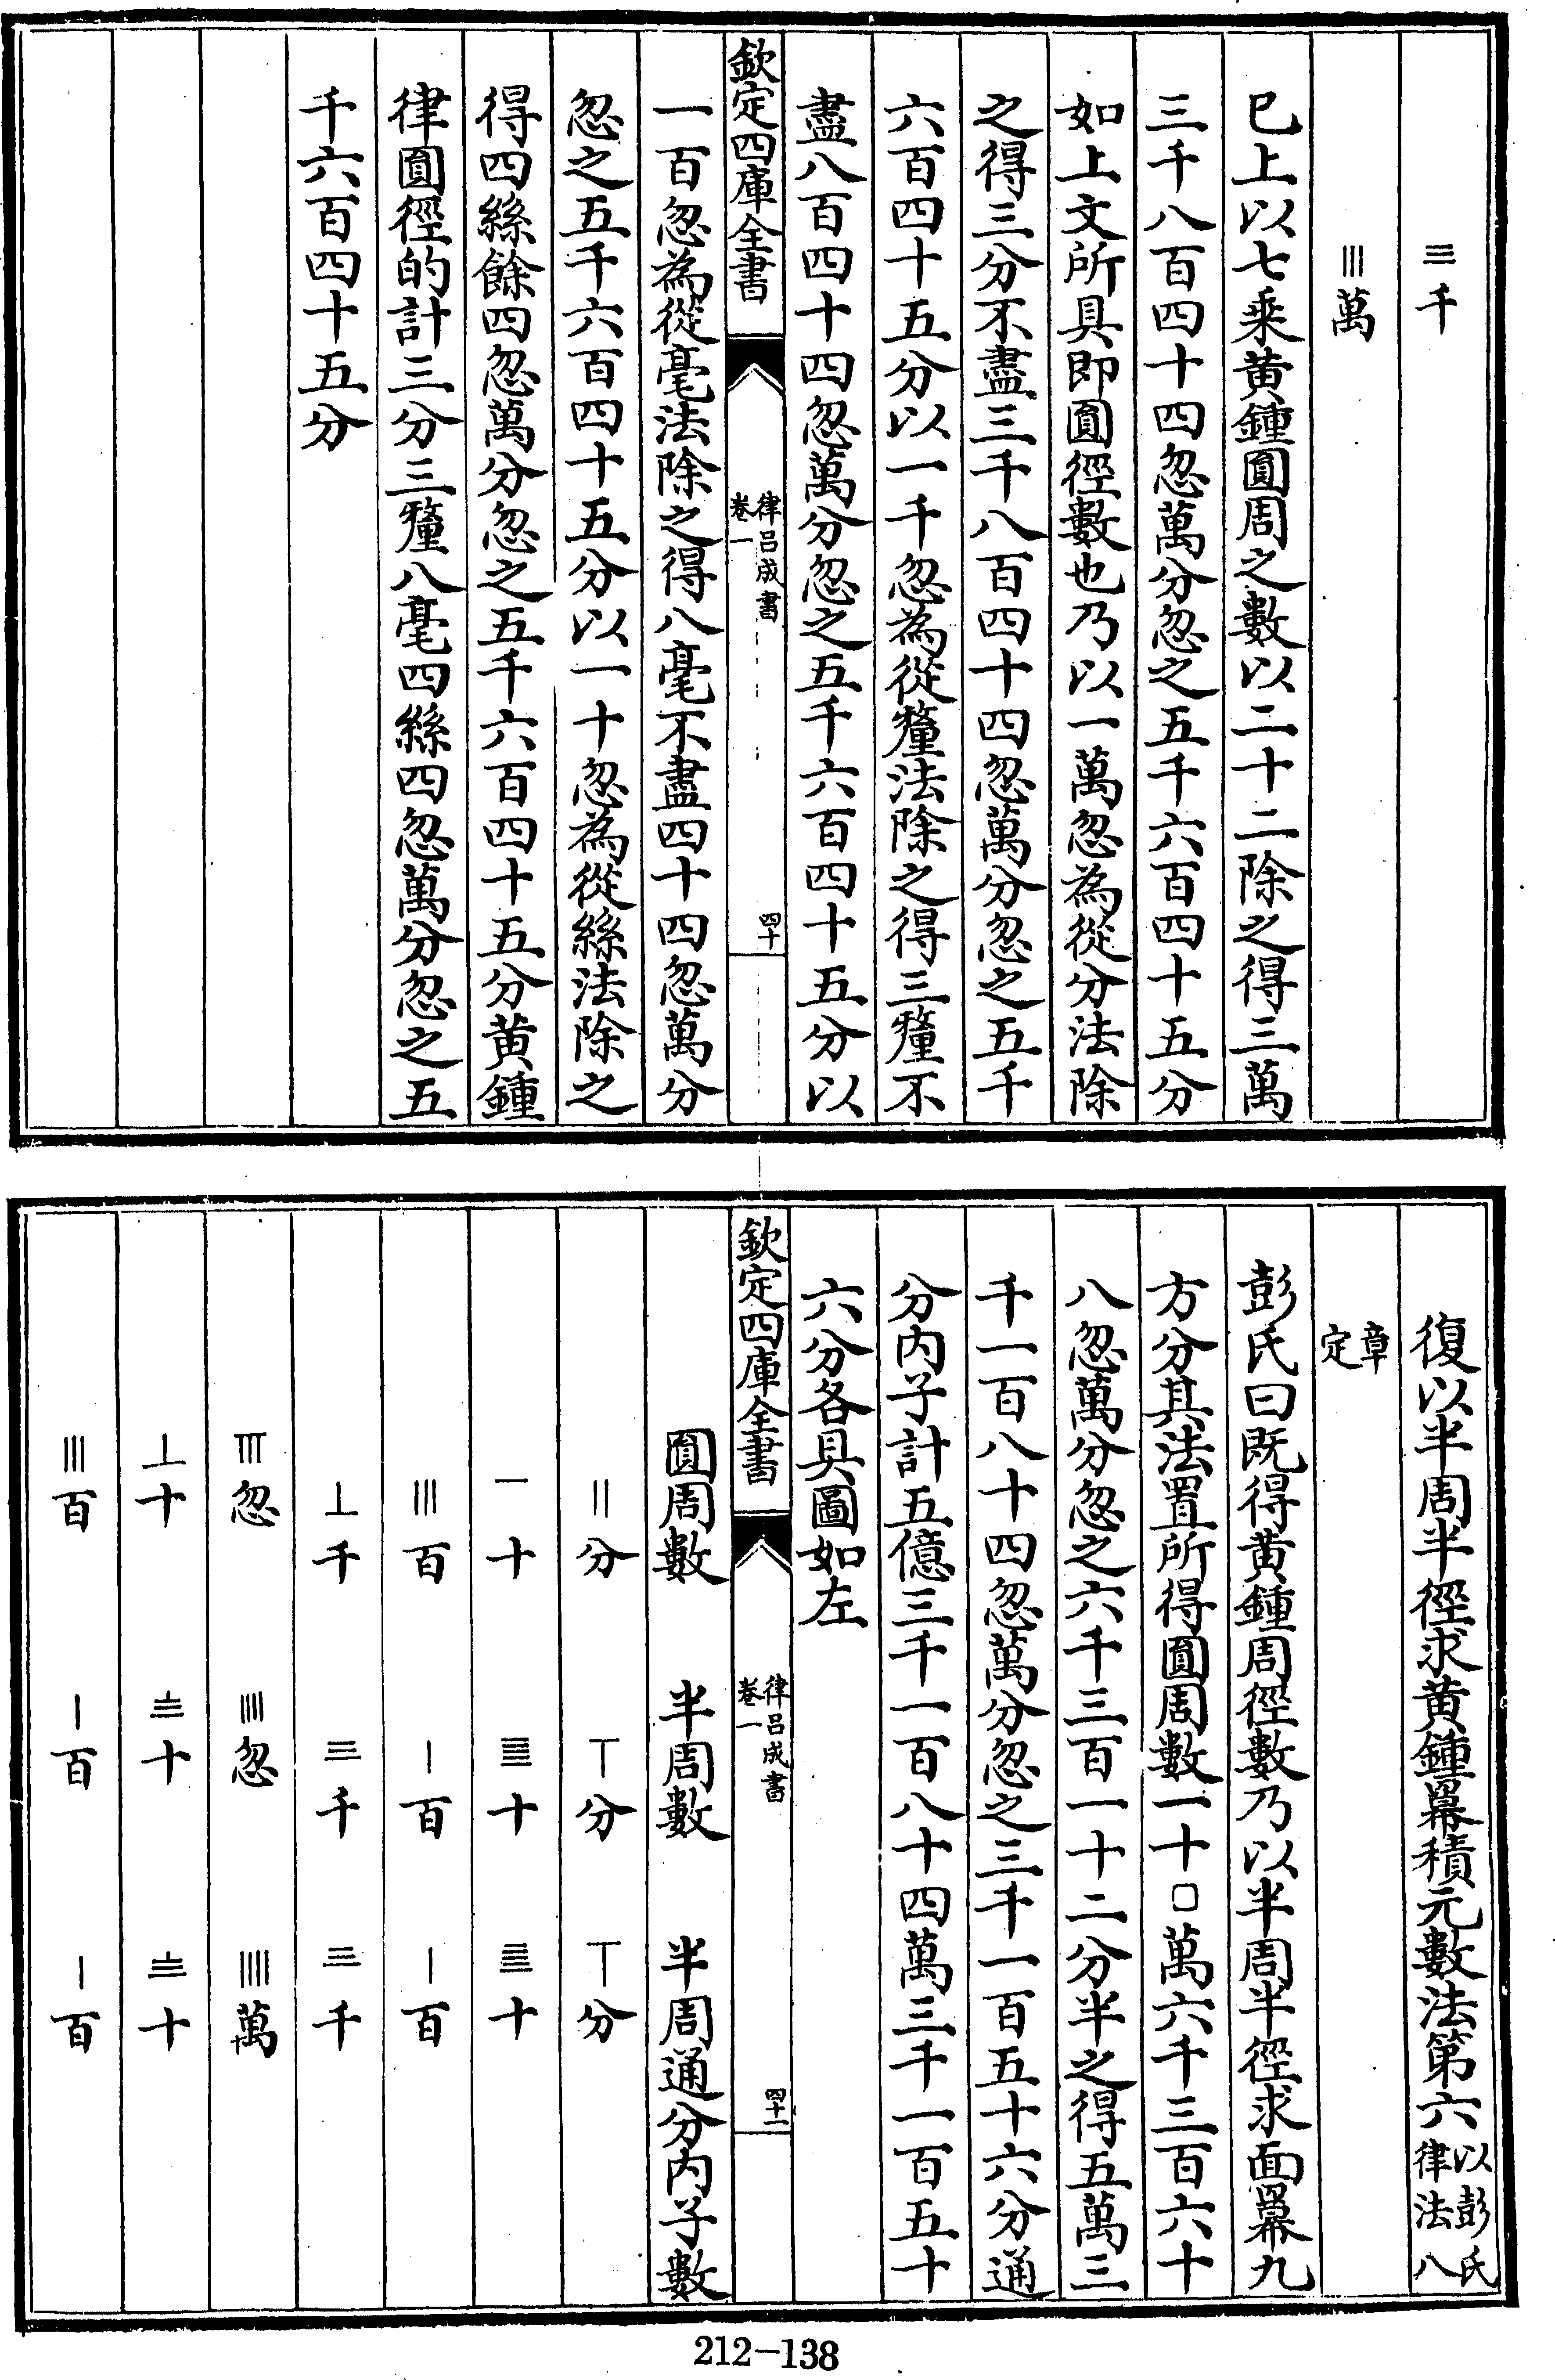 𝍢千
𝍫萬
已上以七乘黄鍾圓周之數以二十二除之得三萬
三千八百四十四忽萬分忽之五千六百四十五分
如上文所具即圓徑數也乃以一萬忽為從分法除
之得三分不盡三千八百四十四忽萬分忽之五千
六百四十五分以一千忽為從釐法除之得三釐不
盡八百四十四忽萬分忽之五千六百四十五分以
欽定四庫全書
律呂成書
卷一
四十
一百忽為從毫法除之得八毫不盡四十四忽萬分
忽之五千六百四十五分以一十忽為從絲法除之
得四絲餘四忽萬分忽之五千六百四十五分黄鍾
律圓徑的計三分三釐八毫四絲四忽萬分忽之五
千六百四十五分
復以半周半徑求黄鍾羃積元數法第六以彭氏律法八
章定
彭氏曰既得黄鍾周徑數乃以半周半徑求面羃九
方分其法置所得圓周數一十□萬六千三百六十
八忽萬分忽之六千三百一十二分半之得五萬三
千一百八十四忽萬分忽之三千一百五十六分通
分内子計五億三千一百八十四萬三千一百五十
六分各具圖如左
欽定四庫全書
律呂成書
卷一
四十一
圓周數 半周數 半周通分内子數
𝍪分 𝍮分 𝍮分
𝍠十 𝍤十 𝍤十
𝍫百 𝍩百 𝍩百
𝍥千 𝍢千 𝍢千
𝍰忽 𝍬忽 𝍬萬
𝍥十 𝍧十 𝍧十
𝍫百 𝍩百 𝍩百
212-138